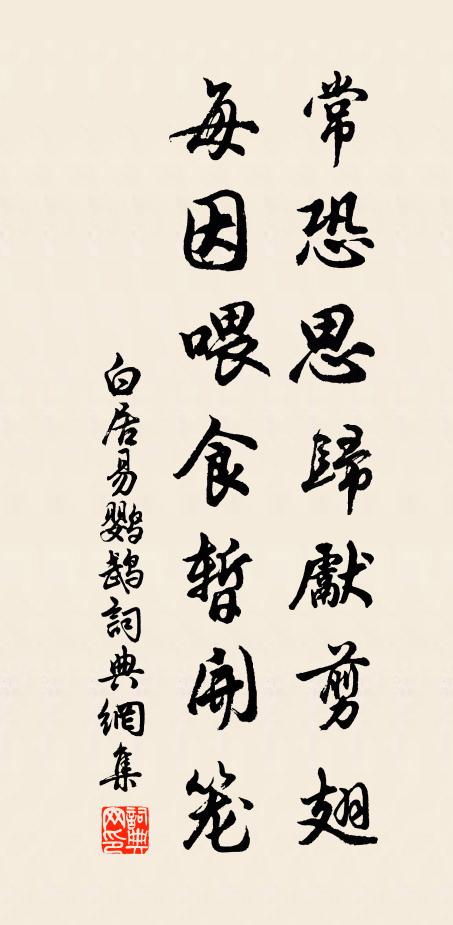 常恐思歸獻剪翅
每因喂食暫開笼
白居易鸚鵡詞典網集
詞典
网印